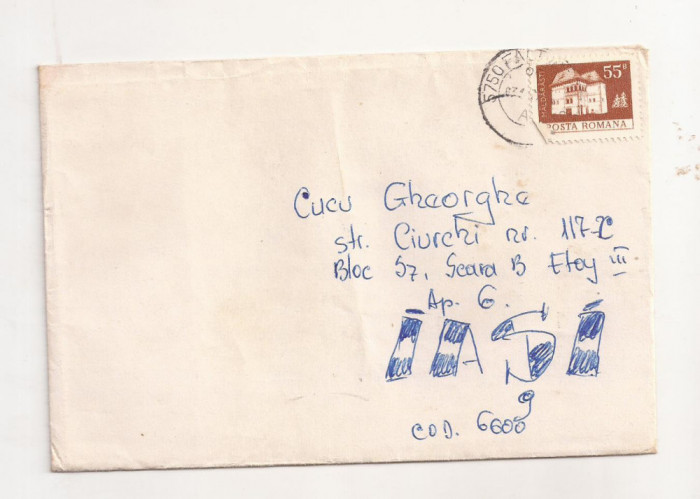 5750
MĂLDĂRĂȘTI
55B
POSTA ROMANA
Cucu Gheorghe
str. Ciurchi nr. 117-C
Bloc S7, Scara B Etaj III
Ap. 6.
IAȘI
COD. 6600